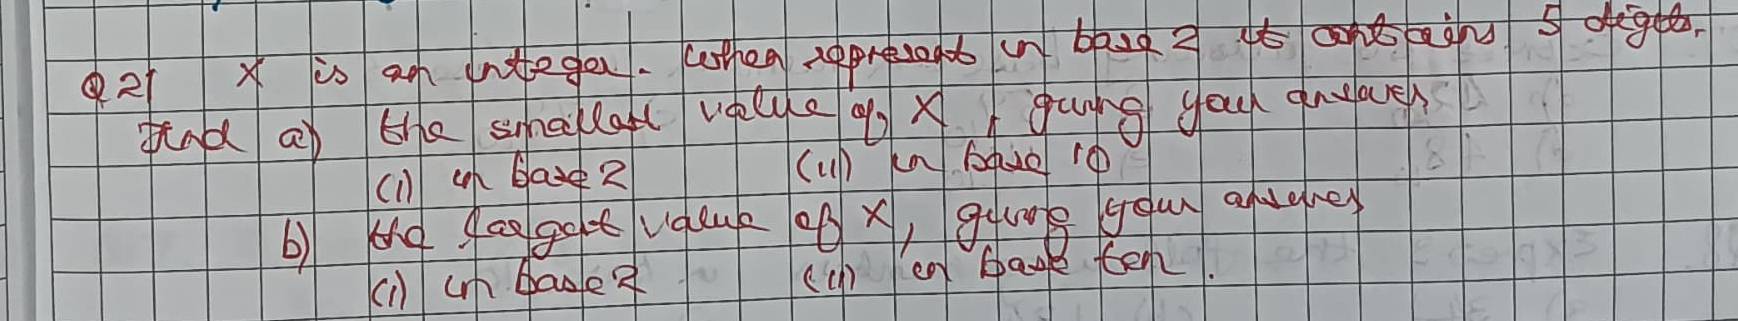 Q21 X is an integer. When represent in base 2 it contains 5 digits.
Find a) the smallest value of X, giving your answers
(i) in base 2 (ii) in base 10
b) the largest value of X, giving your answers
(i) in base 2 (ii) in base ten.